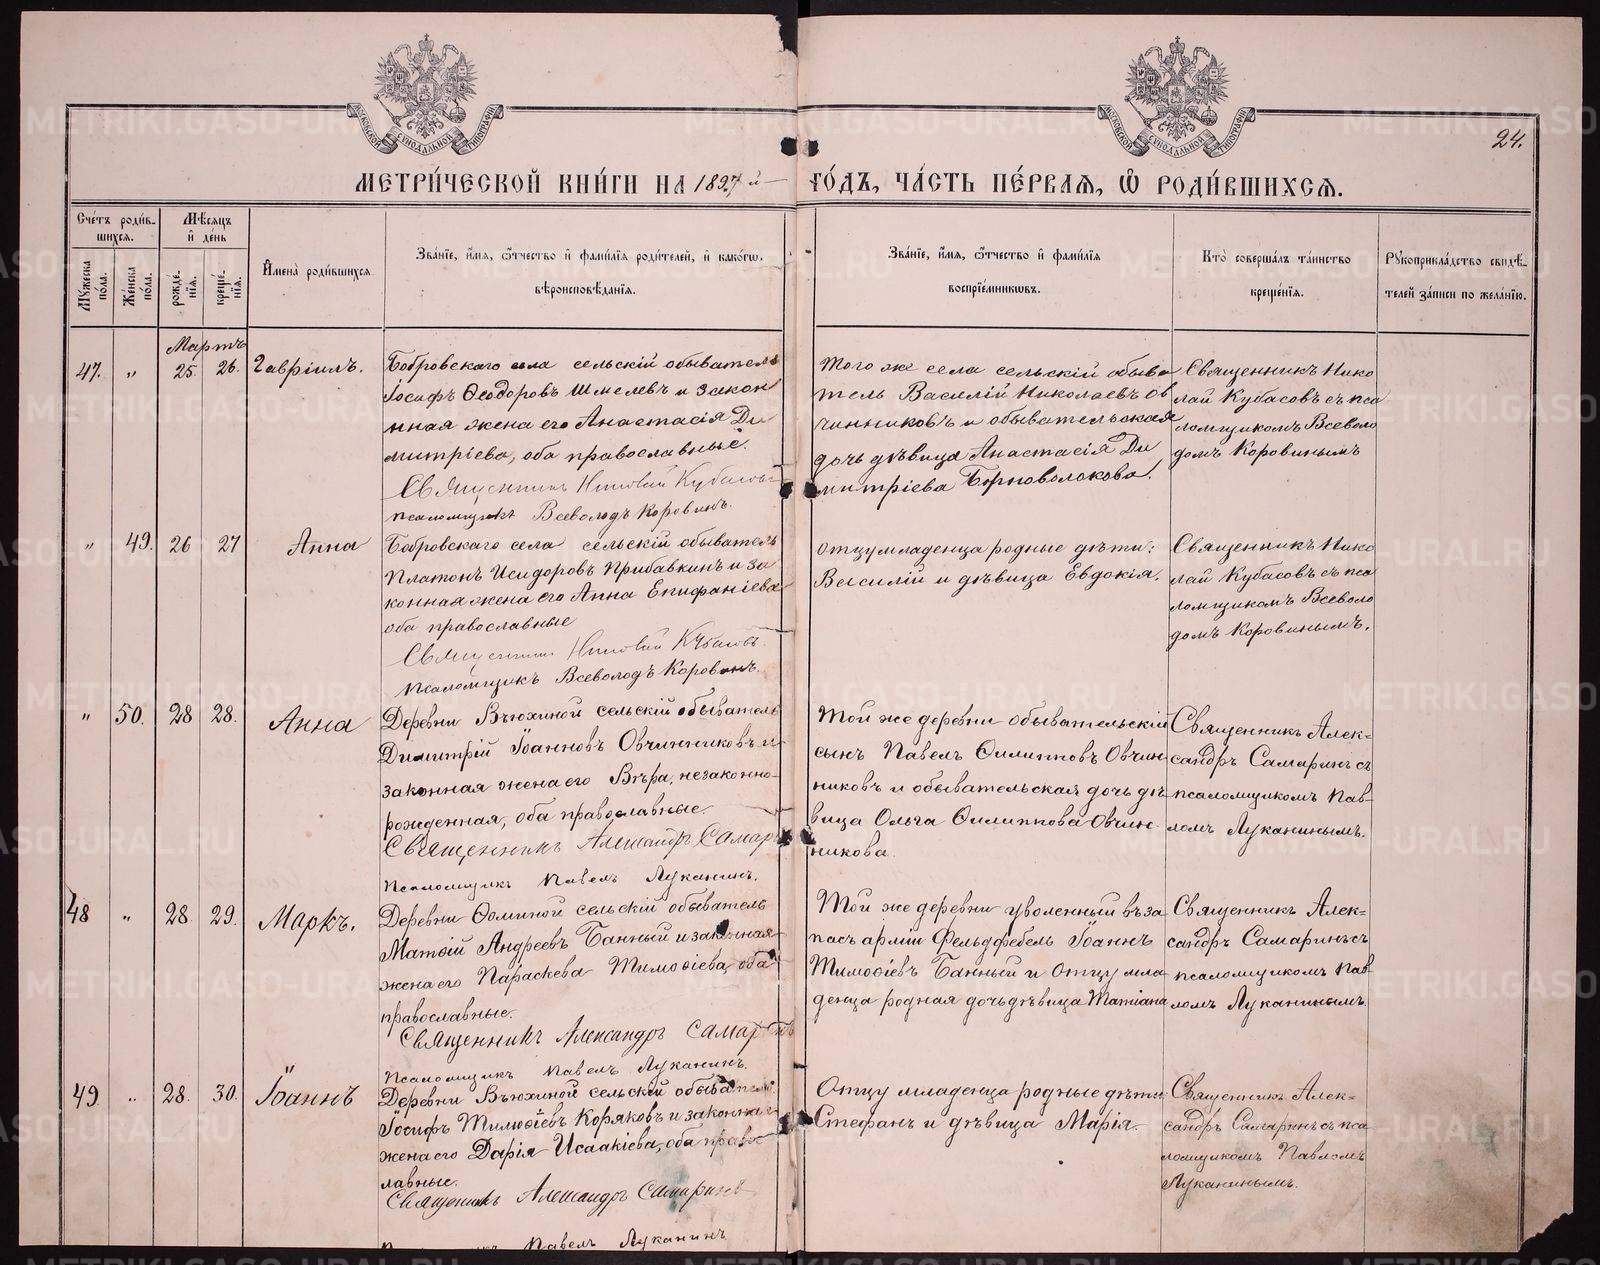 МОСКОВСКОЙ СѴНОДАЛЬНОЙ ТИПОГРАФІИ
МОСКОВСКОЙ СѴНОДАЛЬНОЙ ТИПОГРАФІИ
24.
МЕТРИ́ЧЕСКОЙ КНИ́ГИ НА 1897й ГО́ДЪ, ЧА́СТЬ ПЕ́РВАЯ, Ѽ РОДИ́ВШИХСѦ.
Сче́тъ роди́в-
шихсѧ.
Мѣ́сѧцъ
и҆ де́нь
Мꙋ́жеска по́ла.
Же́нска по́ла.
рожде́-нїѧ.
креще́-нїѧ.
И҆мена̀ роди́вшихсѧ
Зва́нїе, и҆́мѧ, ѻ҆́тчество и҆ фами́лїѧ роди́телей, и҆ како́гѡ
вѣроисповѣ́данїѧ.
Зва́нїе, и҆́мѧ, ѻ҆́тчество и҆ фами́лїѧ
воспрїе́мникѡвъ.
Кто̀ соверша́лъ та́инство
креще́нїѧ.
Рꙋкоприкла́дство свидѣ́-
телей за́писи по жела́нїю.
Мартъ
47. „ 25. 26. Гавріилъ.
Бобровскаго села сельскій обыватель
Іосифъ Ѳеодоровъ Шмелевъ и закон
ная жена его Анастасія Ди
митріева, оба православные.
Священникъ Николай Кубасовъ
псаломщикъ Всеволодъ Коровинъ.
Того ж села сельскій обыва
тель Василій Николаевъ Ов
чинниковъ и обывательская
дочь дѣвица Анастасія Ди
митріева Черноволокова.
Священникъ Нико
лай Кубасовъ съ пса
ломщикомъ Всеволо
домъ Коровинымъ
„ 49. 26 27 Анна
Бобровскаго села сельскій обыватель
Платонъ Исидоровъ Прибавкинъ и за
конная жена его Анна Епифаніева
оба православные
Священникъ Николай Кубасовъ
псаломщикъ Всеволодъ Коровинъ.
Отцу младенца родные дѣти:
Василій и дѣвица Евдокія.
Священникъ Нико
лай Кубасовъ съ пса
ломщикомъ Всеволо
домъ Коровинымъ.
„ 50. 28 28. Анна
Деревни Вьюхиной сельскій обыватель
Димитрій Іоанновъ Овчинниковъ и
законная жена его Вѣра, незаконно-
рожденная, оба православные.
Священникъ Александръ Самаринъ
Псаломщикъ Павелъ Луканинъ.
Той же деревни обывательскій
сынъ Павелъ Филипповъ Овчин
никовъ и обывательская дочь дѣ
вица Ольга Филиппова Овчин-
никова.
Священникъ Алек-
сандръ Самаринъ съ
псаломщикомъ Пав-
ломъ Луканинымъ.
48 „ 28. 29. Маркъ.
Деревни Ѳоминой сельскій обыватель
Матѳій Андреевъ Банный и законная
жена его Параскева Тимоѳіева, оба
православные.
Священникъ Александръ Самаринъ
Псаломщикъ Павелъ Луканинъ.
Той же деревни уволенный въ за
пасъ арміи Фельдфебель Іоаннъ
Тимоѳіевъ Банный и отцу мла
денца родная дочь дѣвица Татіана
Священникъ Алек-
сандръ Самаринъ съ
псаломщикомъ Пав
ломъ Луканинымъ.
49 „ 28. 30. Іоаннъ
Деревни Вьюхиной сельскій обыватель
Іосифъ Тимоѳіевъ Коряковъ и законная
жена его Дарія Исаакіева, оба правос
лавные.
Священникъ Александръ Самаринъ
Псаломщикъ Павелъ Луканинъ
Отцу младенца родные дѣти
Стефанъ и дѣвица Марія.
Священникъ Алек-
сандръ Самаринъ съ пса
ломщикомъ Павломъ
Луканинымъ.
METRIKI.GASO-URAL.RU